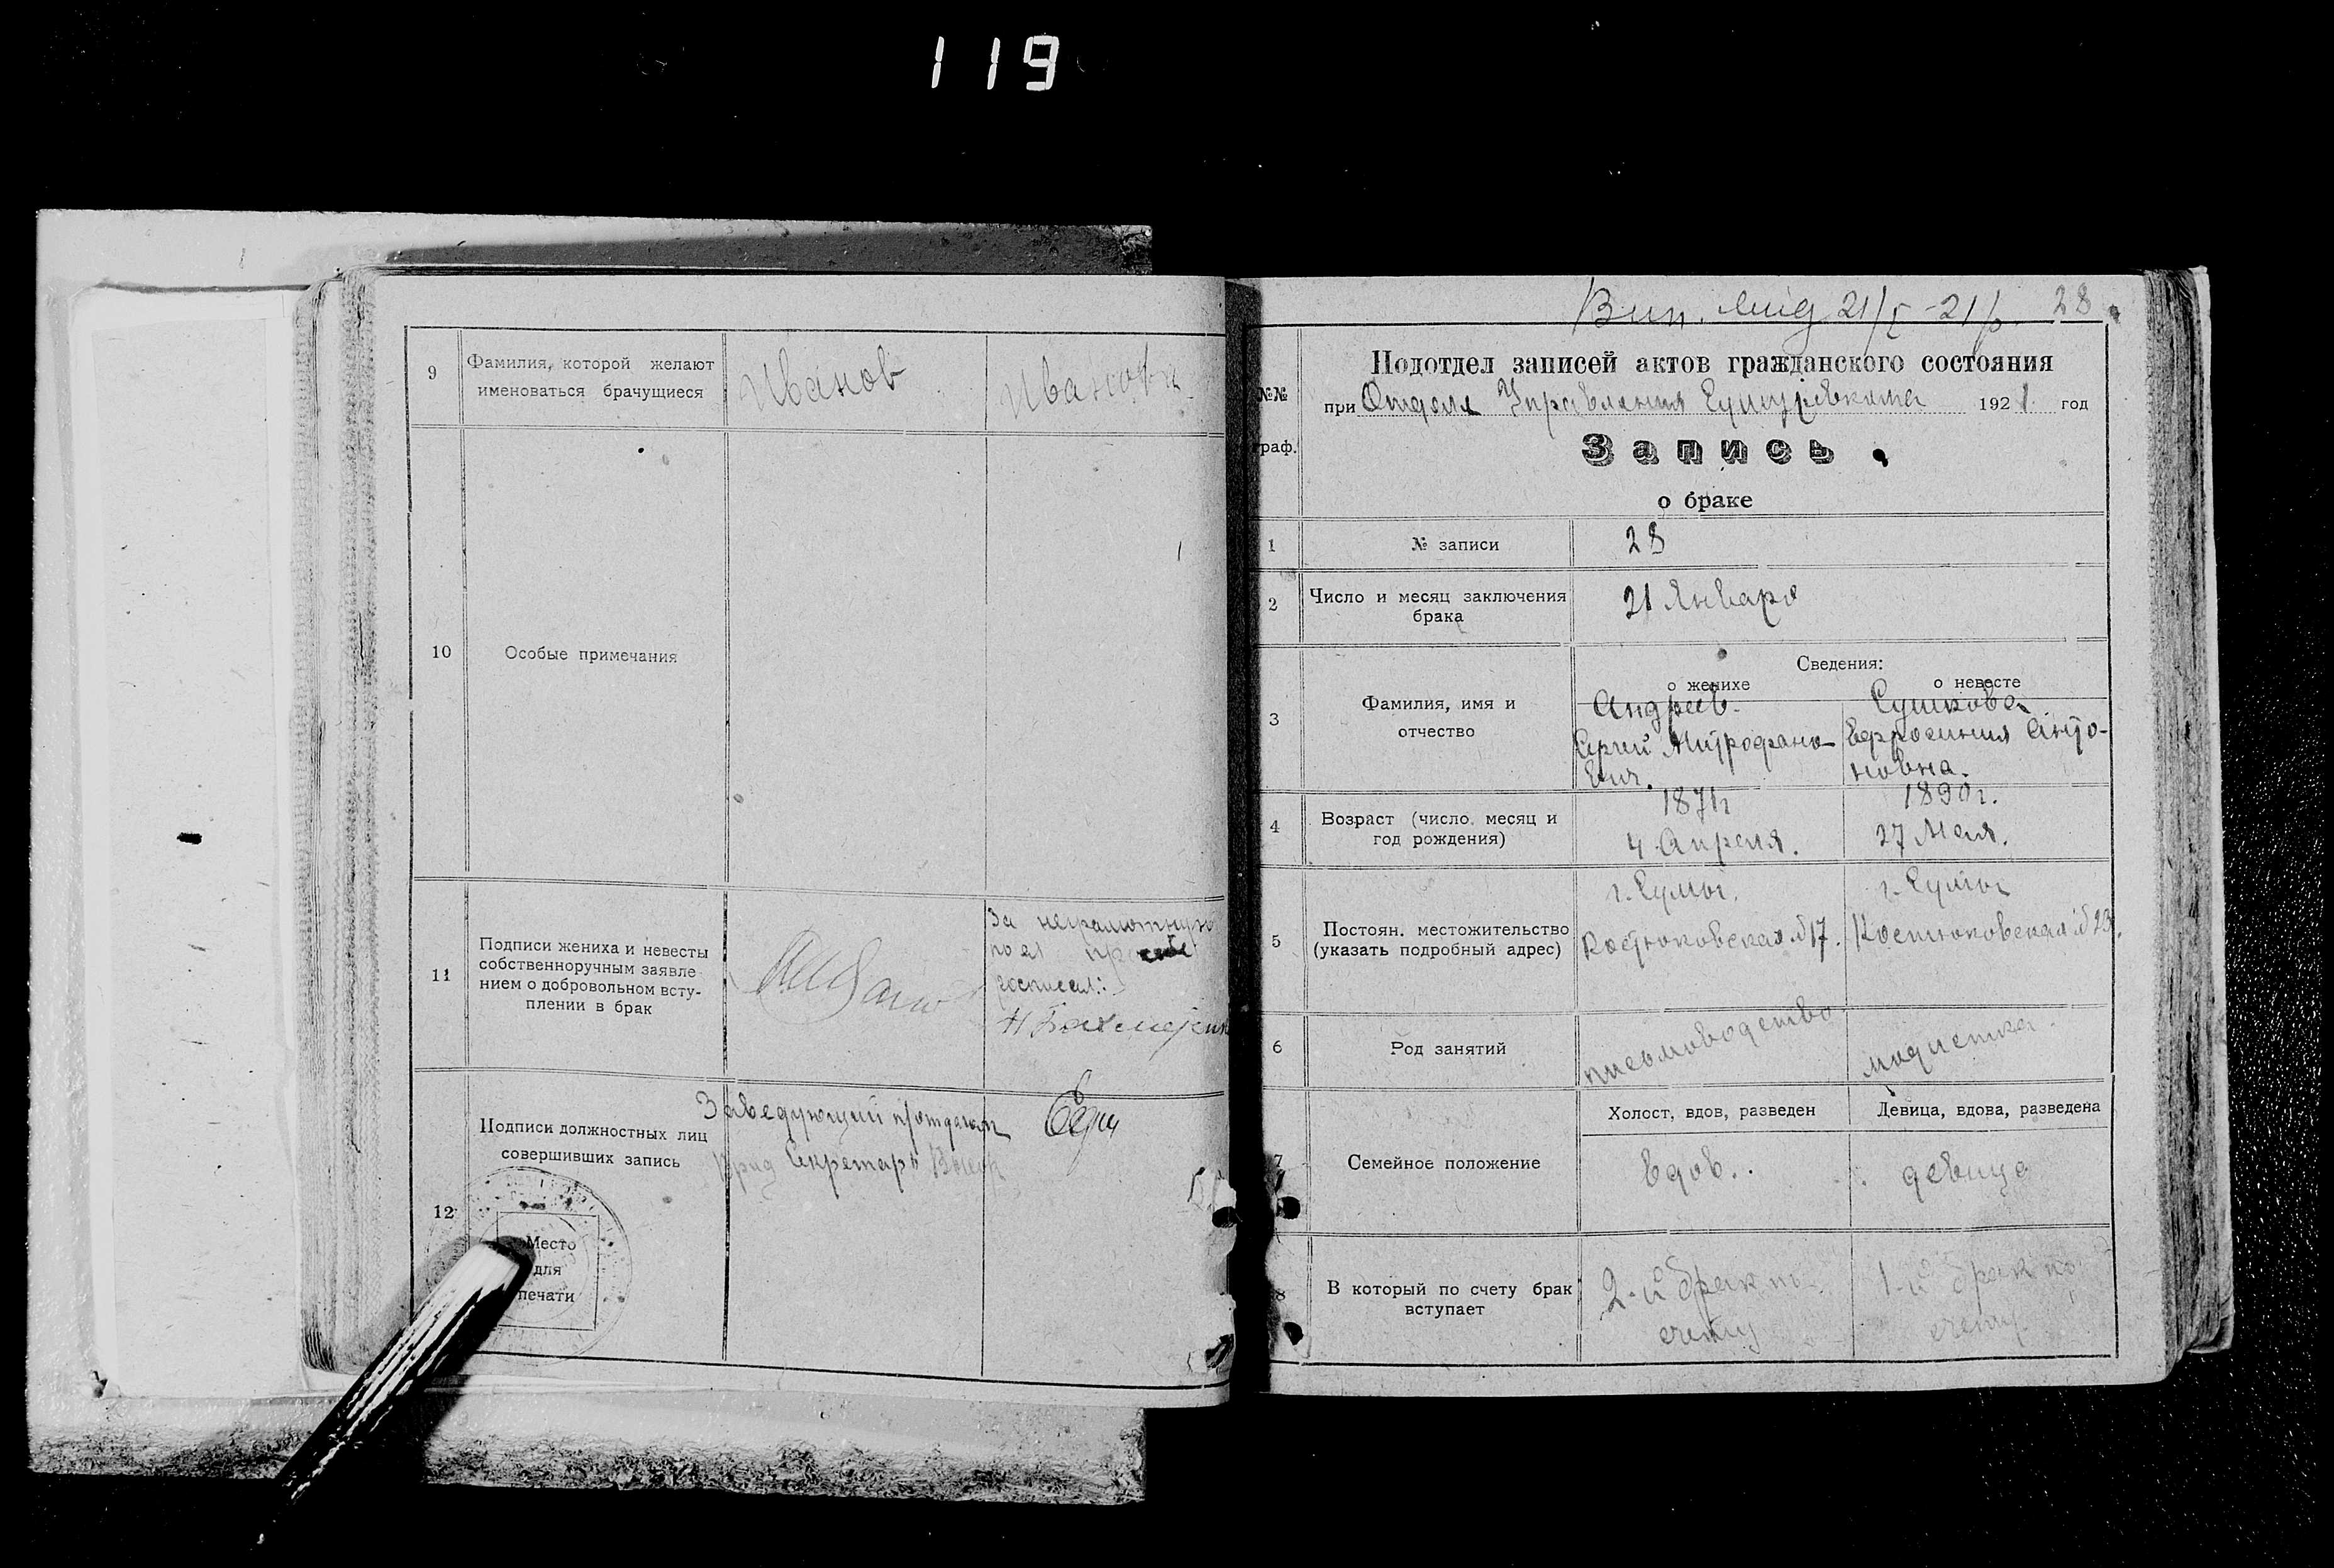 119
9
Фамилия, которой желают
именоваться брачущиеся
Иванов
Иванова
10
Особые примечания
11
Подписи жениха и невесты
собственноручным заявле
нием о добровольном всту-
плении в брак
За неграмотную
по ея
росписал:
12
Подписи должностных лиц
совершивших запись
Заведующий п/отделом
Секретарь
Место
для
печати
Вип. 21/I -21 р. 28
№№
граф.
Подотдел записей актов гражданского состояния
при Отделе Управления Сумуревкома 1921 год
Запись
о браке
1
№ записи
28
2
Число и месяц заключения
брака
21 Января
3
Фамилия, имя и
отчество
Сведения:
о женихе
о невесте
Андреев
Сергей Митрофано
вич.
Сушкова
Ефросиния Анто-
новна.
4
Возраст (число, месяц и
год рождения)
1871г
4 Апреля.
1890г.
27 Мая.
5
Постоян. местожительство
(указать подробный адрес)
г. Сумы.
Костюковская №17.
г. Сумы
Костюковская №23.
6
Род занятий
письмоводство
модистка.
7
Семейное положение
Холост, вдов, разведен
Девица, вдова, разведена
вдов.
девица
8
В который по счету брак
вступает
2-й брак по
счету
1-й брак по
счету